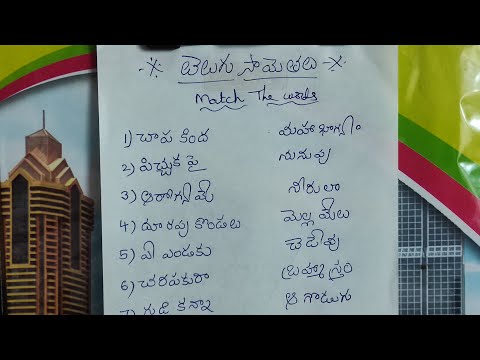 తెలుగు సామెతలు
Match The words
1) చాప కింద మహాభాగ్యం
2) పిచ్చుక పై నునుపు
3) ఆరోగ్యమే నీరులా
4) దూరపు కొండలు మెల్ల మేలు
5) ఏ ఎండకు చెడేవు
6) చెరపకురా బ్రహ్మాస్త్రం
7) గుడి కన్నా ఆ గొడుగు